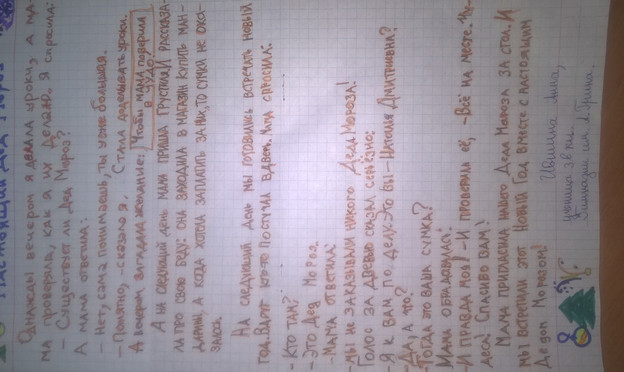 Настоящий Дед Мороз
Однажды вечером я делала уроки, а ма-
ма проверяла, как я их делаю. Я спросила:
- Существует ли Дед Мороз?
А мама ответила:
- Нет, сама понимаешь, ты уже большая.
- Понятно, - сказала я. Стала доделывать уроки.
А вечером загадала желание: Чтобы мама поверила
в чудо.
А на следующий день мама пришла грустная и рассказа-
ла про свою беду: она заходила в магазин купить ман-
дарины, а когда хотела заплатить за них, то сумки не ока-
залось.
На следующий день мы готовились встречать новый
год. Вдруг кто-то постучал в дверь. Мама спросила:
- Кто там?
- Это Дед Мороз
- Мама ответила:
- Мы не заказывали никого Деда Мороза!
Голос за дверью сказал серьёзно:
- Я к вам по делу. Это вы - Наталья Дмитриевна?
- Да, а что?
- Тогда это ваша сумка?
Мама обрадовалась:
- И правда моя! - И проверила её, - Всё на месте. Чу-
деса! Спасибо вам!
Мама пригласила нашего Деда Мороза за стол. И
мы встретили этот Новый Год вместе с настоящим
Дедом Морозом!
Анна,
ученица 3 кл.
Гимназии им. А. Грина.